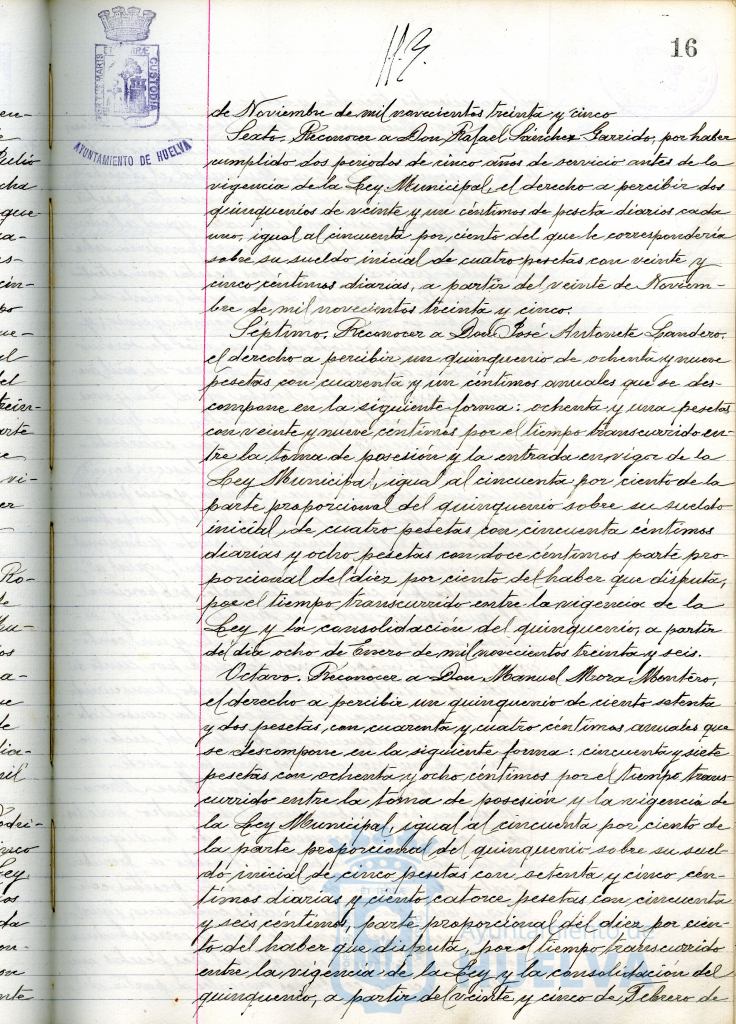 16
AYUNTAMIENTO DE HUELVA
CUSTODIA
de Noviembre de mil novecientos treinta y cinco
Sexto. Reconocer a Don Rafael Sánchez Garrido, por haber
cumplido dos periodos de cinco años de servicio antes de la
vigencia de la Ley Municipal, el derecho a percibir dos
quinquenios de veinte y un céntimos de peseta diarios cada
uno, igual al cincuenta por ciento del que le correspondería
sobre su sueldo inicial de cuatro pesetas con veinte y
cinco céntimos diarias, a partir del veinte de Noviem-
bre de mil novecientos treinta y cinco.
Septimo. Reconocer a Don José Antonete Landero,
el derecho a percibir un quinquenio de ochenta y nueve
pesetas con cuarenta y un céntimos anuales que se des-
compone en la siguiente forma: ochenta y una pesetas
con veinte y nueve céntimos por el tiempo transcurrido en-
tre la toma de posesión y la entrada en vigor de la
Ley Municipal, igual al cincuenta por ciento de la
parte proporcional del quinquenio sobre su sueldo
inicial de cuatro pesetas con cincuenta céntimos
diarias y ocho pesetas con doce céntimos parte pro-
porcional del diez por ciento del haber que disfruta,
por el tiempo transcurrido entre la vigencia de la
Ley y la consolidación del quinquenio, a partir
del dia ocho de Enero de mil novecientos treinta y seis.
Octavo. Reconocer a Don Manuel Mora Montero,
el derecho a percibir un quinquenio de ciento setenta
y dos pesetas, con cuarenta y cuatro céntimos anuales que
se descompone en la siguiente forma: cincuenta y siete
pesetas con ochenta y ocho céntimos por el tiempo trans-
currido entre la toma de posesión y la vigencia de
la Ley Municipal, igual al cincuenta por ciento de
la parte proporcional del quinquenio sobre su suel-
do inicial de cinco pesetas con setenta y cinco cén-
timos diarias y ciento catorce pesetas con cincuenta
y seis céntimos, parte proporcional del diez por cien-
to del haber que disfruta, por el tiempo transcurrido
entre la vigencia de la Ley y la consolidación del
quinquenio, a partir del veinte y cinco de Febrero de
Ayuntamiento de
HUELVA